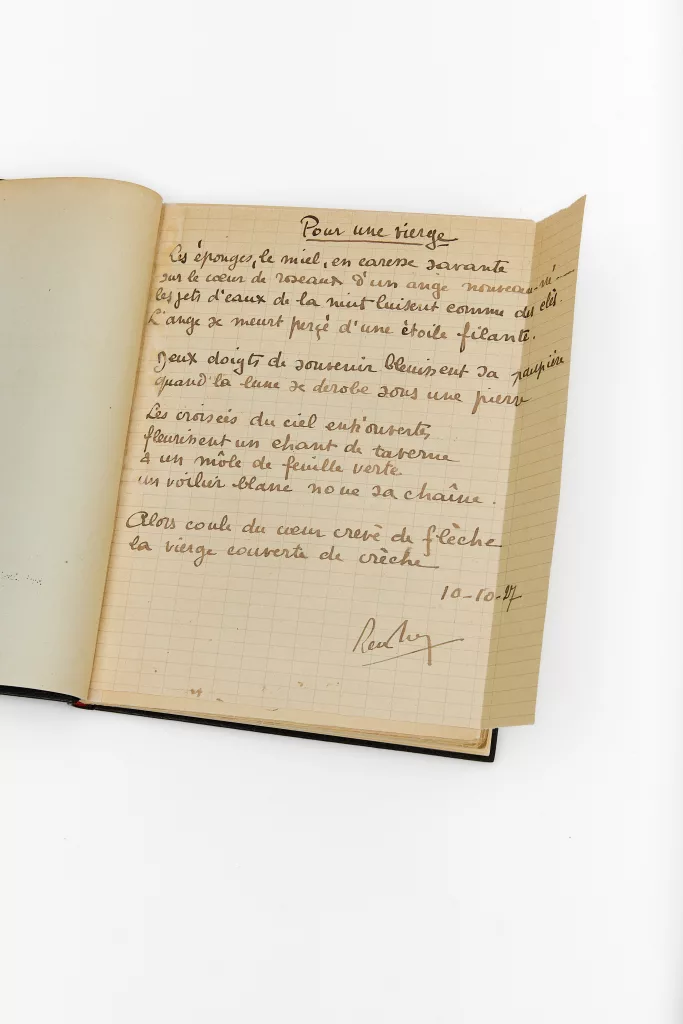 Pour une vierge
Les éponges, le miel, en caresse savante
sur le cœur de roseaux d'un ange nouveau-né
les jets d'eaux de la nuit luisent comme des clés.
L'ange se meurt perçé d'une étoile filante.
Deux doigts de souvenir bleuissent sa paupière
quand la lune se dérobe sous une pierre
Les croisées du ciel entr'ouvertes
fleurissent un chant de taverne
à un môle de feuille verte
un voilier blanc noue sa chaîne.
Alors coule du cœur crevé de flèche
la vierge couverte de crèche
10-10-27